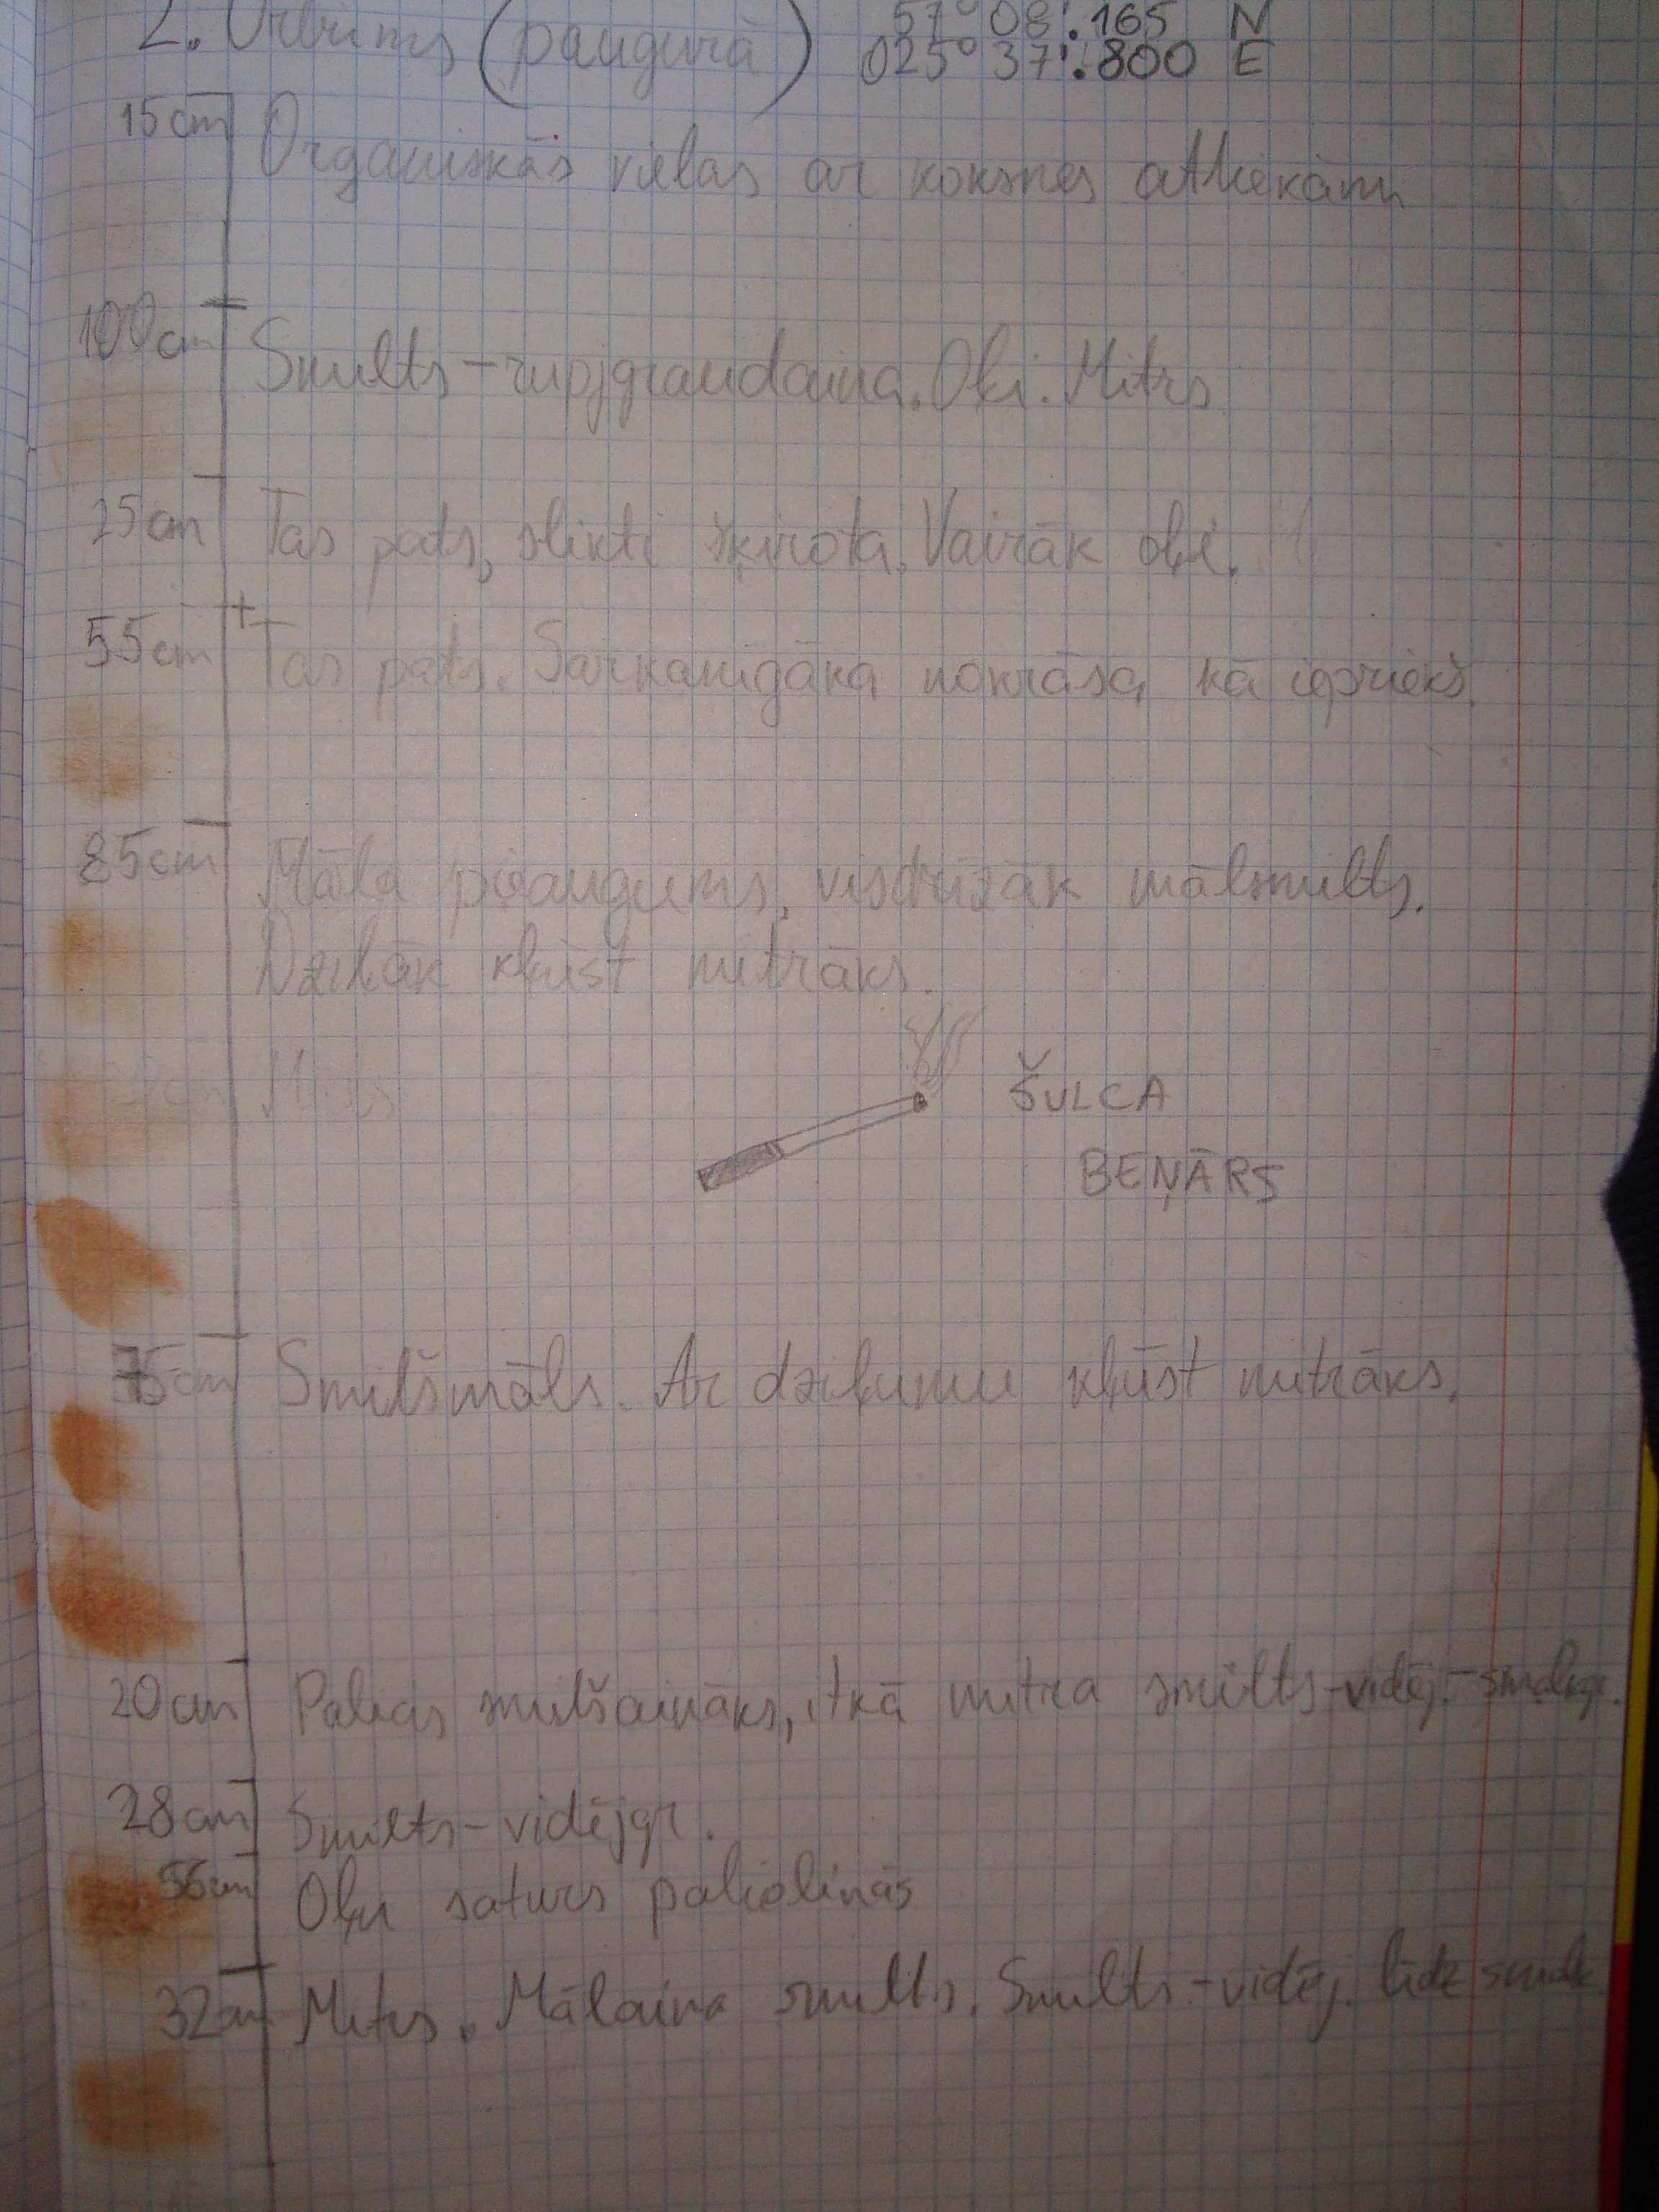 2. Urbums (paugurā) 57° 08'.165 N
025° 37'.800 E
15cm Organiskās vielas ar koksnes atliekām
100cm Smilts-rupjgraudaina. Oļi. Mitrs
25cm Tas pats, slikti šķirota. Vairāk oļi.
55cm + Tas pats. Sarkanīgāka nokrāsa, kā iepriekš.
85cm Māla pieaugums, visdrīzāk mālsmilts.
Dziļāk kļūst mitrāks.
Mitrs
ŠULCA
BEŅĀRS
75cm Smilšmāls. Ar dziļumu kļūst mitrāks.
20cm Paliek smilšaināks, itkā mitra smilts-vidēj.-smalkgr.
28cm Smilts-vidējgr.
56cm Oļu saturs palielinās
32cm Mitrs. Mālaina smilts. Smilts-vidēj. līdz smalk.